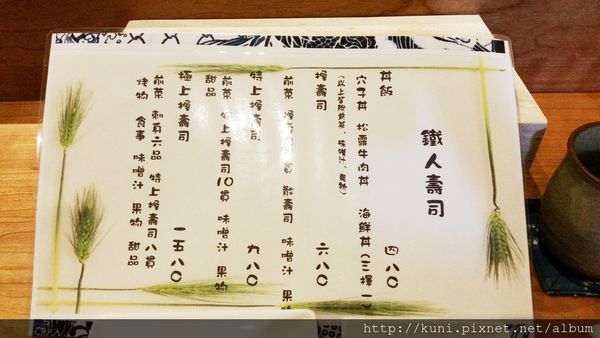 鐵人壽司
丼飯 四八〇
穴子丼 松露牛肉丼 海鮮丼(三擇一)
握壽司 六八〇
前菜 握壽司 貫 散壽司 味噌汁 果物
特上握壽司 九八〇
前菜 特上握壽司10貫 味噌汁 果物
甜品
極上握壽司 一五八〇
前菜 刺身六品 特上握壽司八貫
烤物 食事 味噌汁 果物 甜品
http://kuni.pixnet.net/album